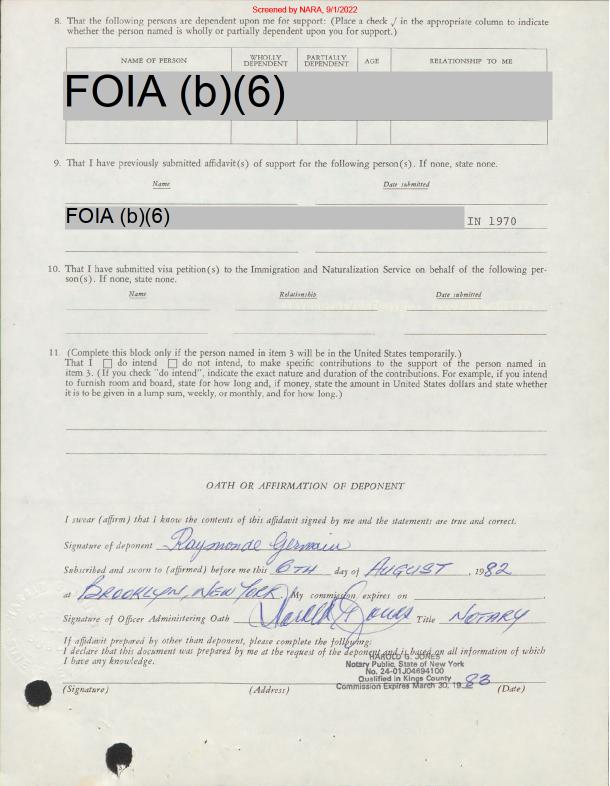 Screened by NARA, 9/1/2022
8. That the following persons are dependent upon me for support: (Place a check √ in the appropriate column to indicate
whether the person named is wholly or partially dependent upon you for support.)
NAME OF PERSON WHOLLY DEPENDENT PARTIALLY DEPENDENT AGE RELATIONSHIP TO ME
FOIA (b)(6)
9. That I have previously submitted affidavit(s) of support for the following person(s). If none, state none.
Name Date submitted
FOIA (b)(6) IN 1970
10. That I have submitted visa petition(s) to the Immigration and Naturalization Service on behalf of the following per-
son(s). If none, state none.
Name Relationship Date submitted
11. (Complete this block only if the person named in item 3 will be in the United States temporarily.)
That I ☐ do intend ☐ do not intend, to make specific contributions to the support of the person named in
item 3. (If you check "do intend", indicate the exact nature and duration of the contributions. For example, if you intend
to furnish room and board, state for how long and, if money, state the amount in United States dollars and state whether
it is to be given in a lump sum, weekly, or monthly, and for how long.)
OATH OR AFFIRMATION OF DEPONENT
I swear (affirm) that I know the contents of this affidavit signed by me and the statements are true and correct.
Signature of deponent Raymonde Germain
Subscribed and sworn to (affirmed) before me this 6TH day of AUGUST, 1982
at BROOKLYN, NEW YORK. My commission expires on
Signature of Officer Administering Oath Harold G. Jones Title NOTARY
If affidavit prepared by other than deponent, please complete the following:
I declare that this document was prepared by me at the request of the deponent and is based on all information of which
I have any knowledge.
HAROLD G. JONES
Notary Public, State of New York
No. 24-01JO4694100
Qualified in Kings County
Commission Expires March 30, 1983
(Signature) (Address) (Date)